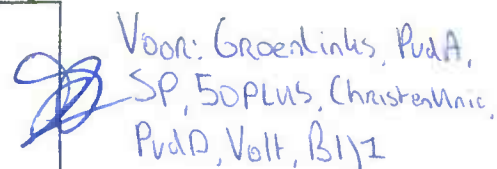 Voor: GroenLinks, PvdA,
SP, 50PLUS, ChristenUnie,
PvdD, Volt, BIJ1